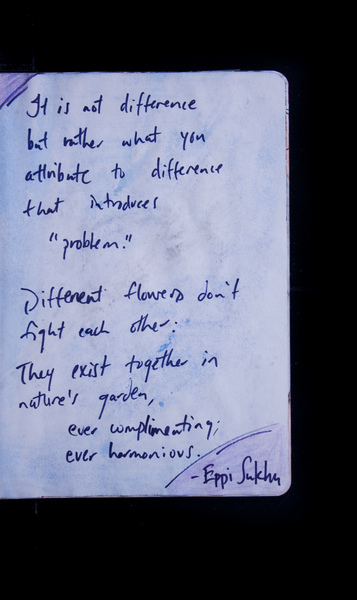 It is not difference
but rather what you
attribute to difference
that introduces
"problem."
Different flowers don't
fight each other:
They exist together in
nature's garden,
ever complimenting;
ever harmonious.
- Eppi Sukhu